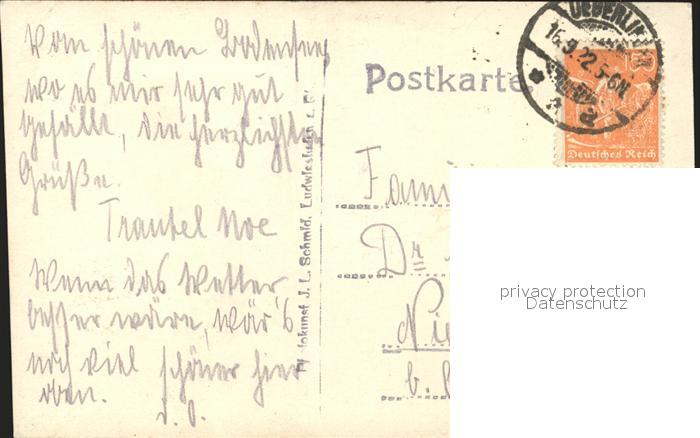 Vom schönen Bodensee,
wo es mir sehr gut
gefällt, die herzlichsten
Grüße.
Trautel Noe
Wenn das Wetter
besser wäre, wär's
noch viel schöner hier
oben.
d. O.
J. L. Schmid, Ludwigshafen a.
Postkarte
UEBERLINGEN
16.9.22.5-6N.
a
Deutsches Reich
Fami
Dr
Nie
b.
privacy protection
Datenschutz